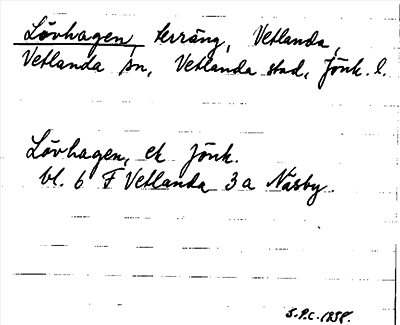 Lövhagen, terräng, Vetlanda,
Vetlanda sn, Vetlanda stad, Jönk. l.
Lövhagen, ek Jönk.
bl. 6 F Vetlanda 3a Näsby.